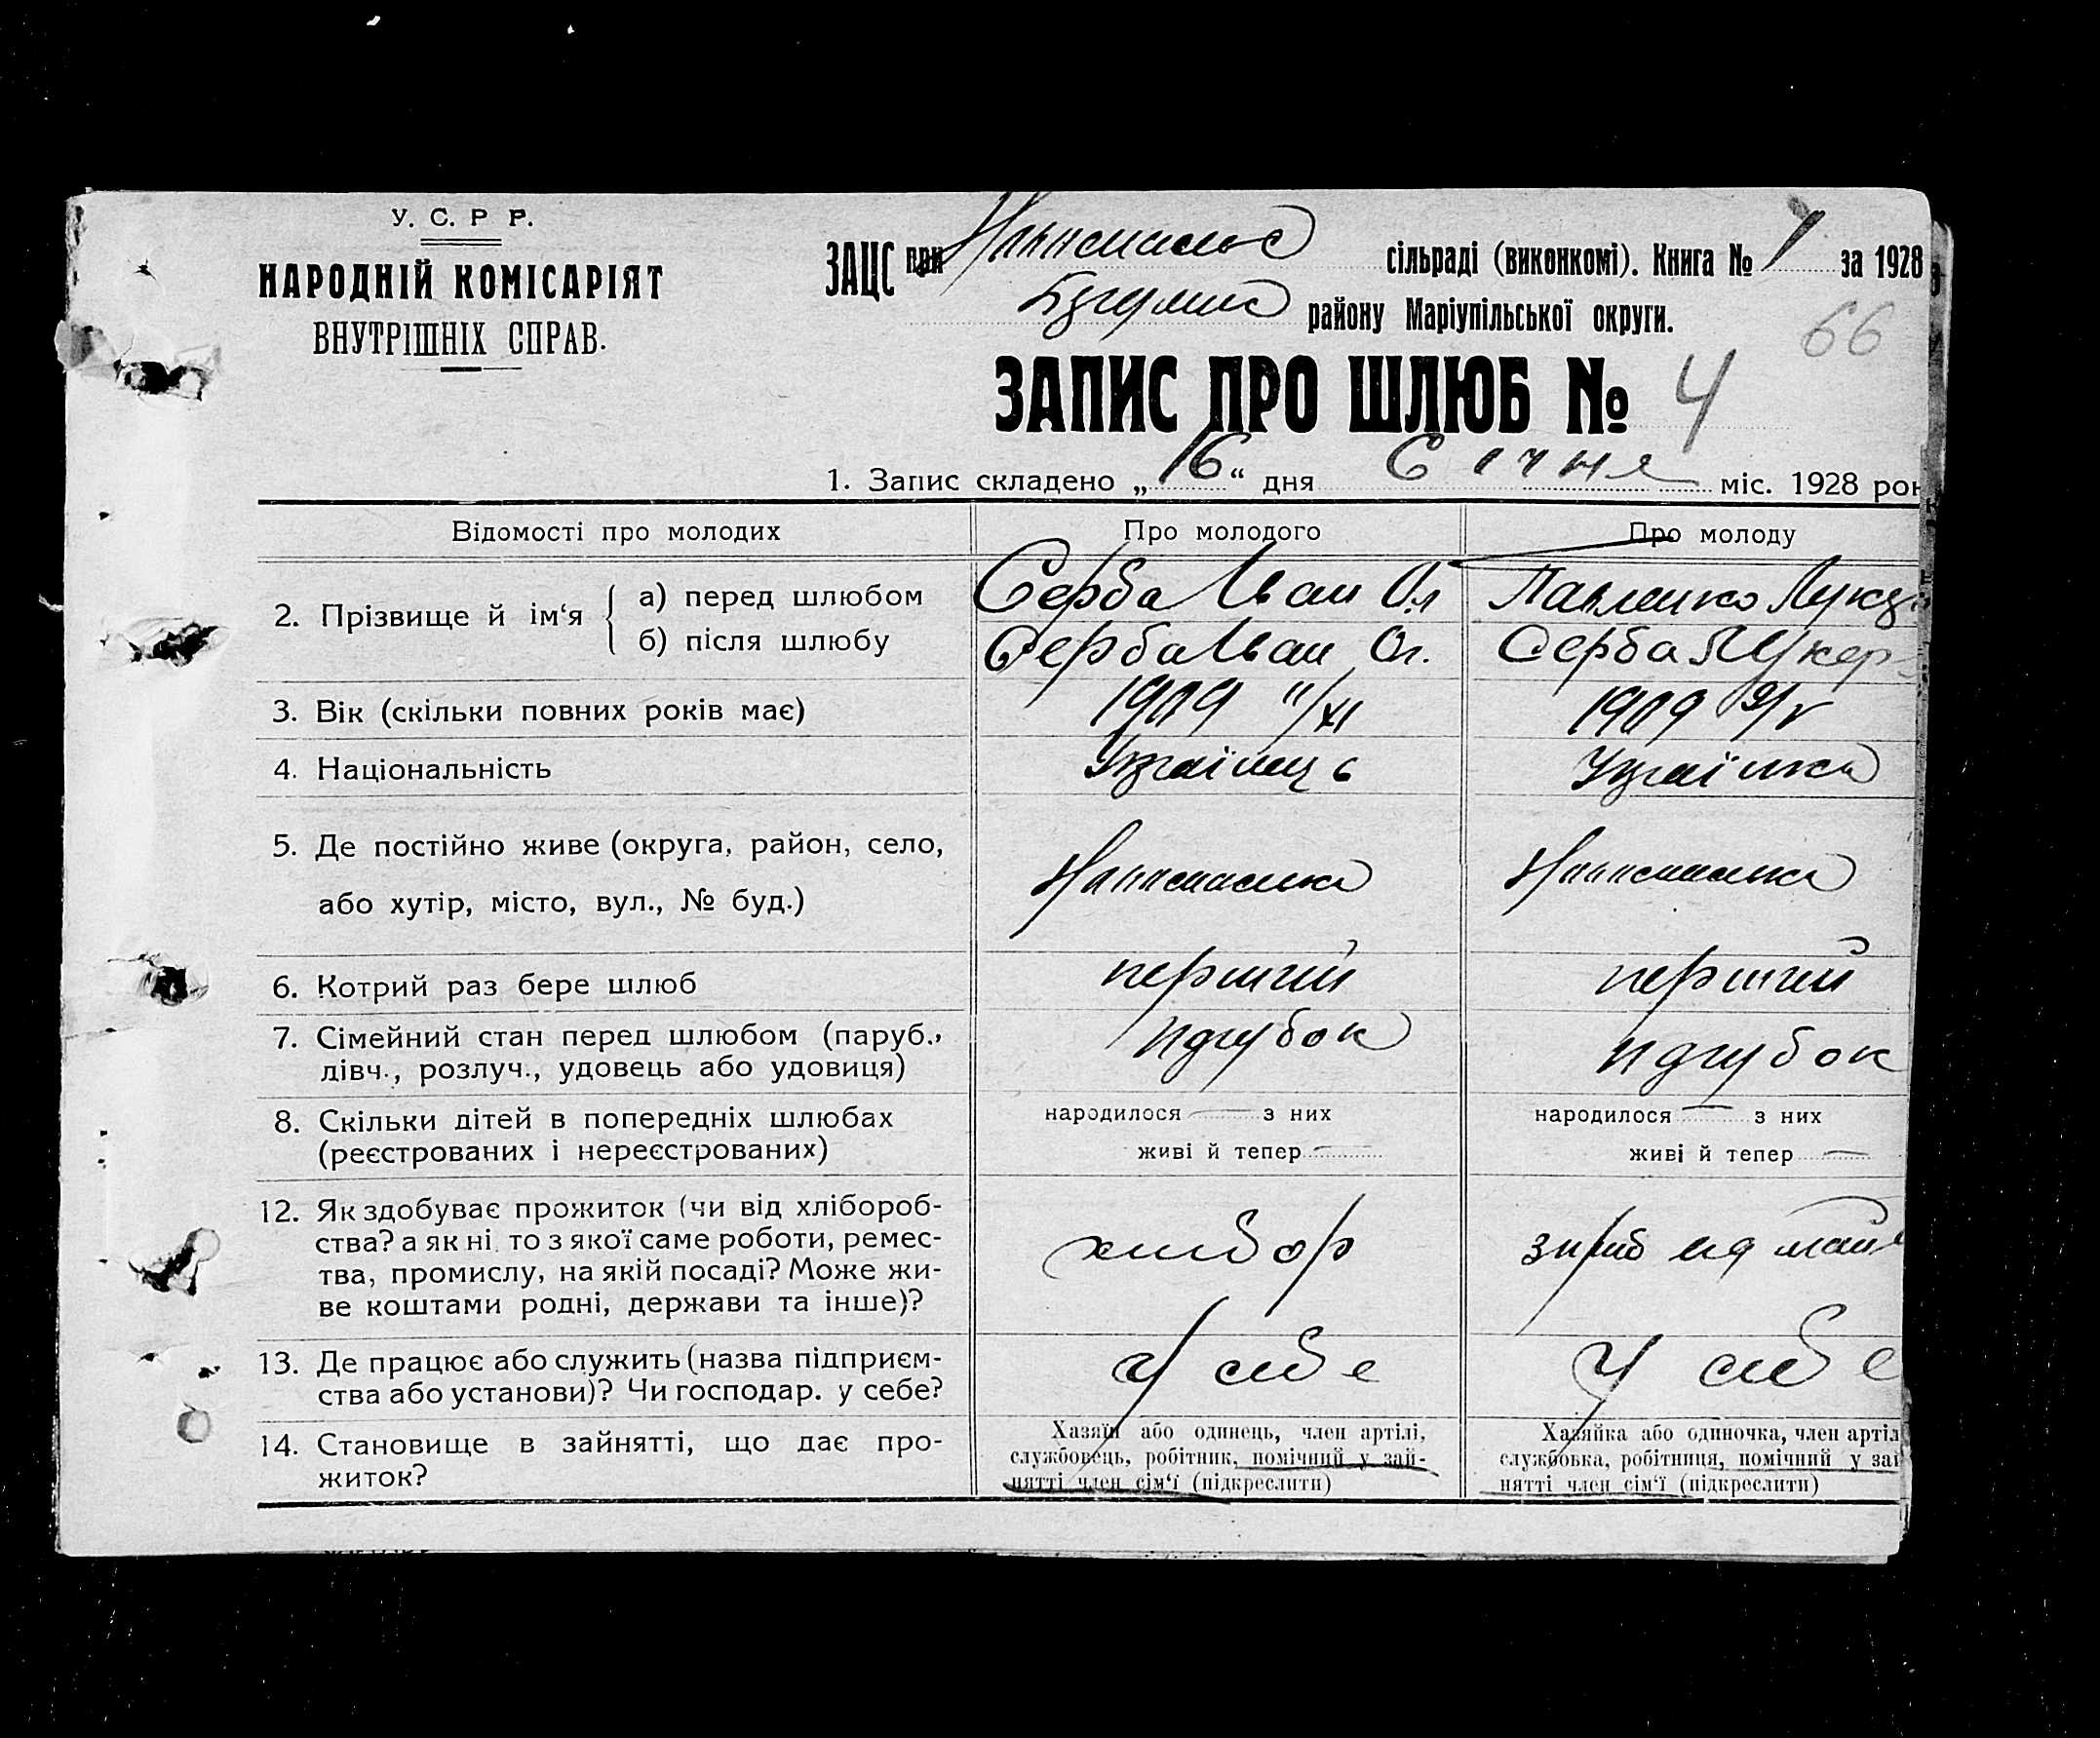 У. С. Р Р.
НАРОДНІЙ КОМІСАРІЯТ
ВНУТРІШНІХ СПРАВ.
ЗАЦС при сільраді (виконкомі). Книга № 1 за 1928
району Маріупільської округи.
66
ЗАПИС ПРО ШЛЮБ № 4
1. Запис складено „16“ дня Січня міс. 1928 рок
Відомості про молодих
Про молодого
Про молоду
2. Прізвище й ім‘я
а) перед шлюбом
Серба Іван Ол
Павленко Лукер
б) після шлюбу
Серба Іван Ол.
Серба Лукер
3. Вік (скільки повних років має)
1909 11/XI
1909 9/V
4. Національність
Українець
Українка
5. Де постійно живе (округа, район, село,
або хутір, місто, вул., № буд.)
6. Котрий раз бере шлюб
перший
перший
7. Сімейний стан перед шлюбом (паруб.,
дівч., розлуч., удовець або удовиця)
парубок
парубок
8. Скільки дітей в попередніх шлюбах
(реєстрованих і нереєстрованих)
народилося — з них
живі й тепер —
народилося — з них
живі й тепер —
12. Як здобуває прожиток (чи від хлібороб-
ства? а як ні, то з якої саме роботи, ремес-
тва, промислу, на якій посаді? Може жи-
ве коштами родні, держави та інше)?
хлібор
13. Де працює або служить (назва підприєм-
ства або установи)? Чи господар. у себе?
У себе
У себе
14. Становище в зайнятті, що дає про-
житок?
Хазяїн або одинець, член артілі,
службовець, робітник, помічний у зай-
нятті член сім‘ї (підкреслити)
Хазяйка або одиночка, член артіл
службовка, робітниця, помічний у зай
нятті член сім‘ї (підкреслити)